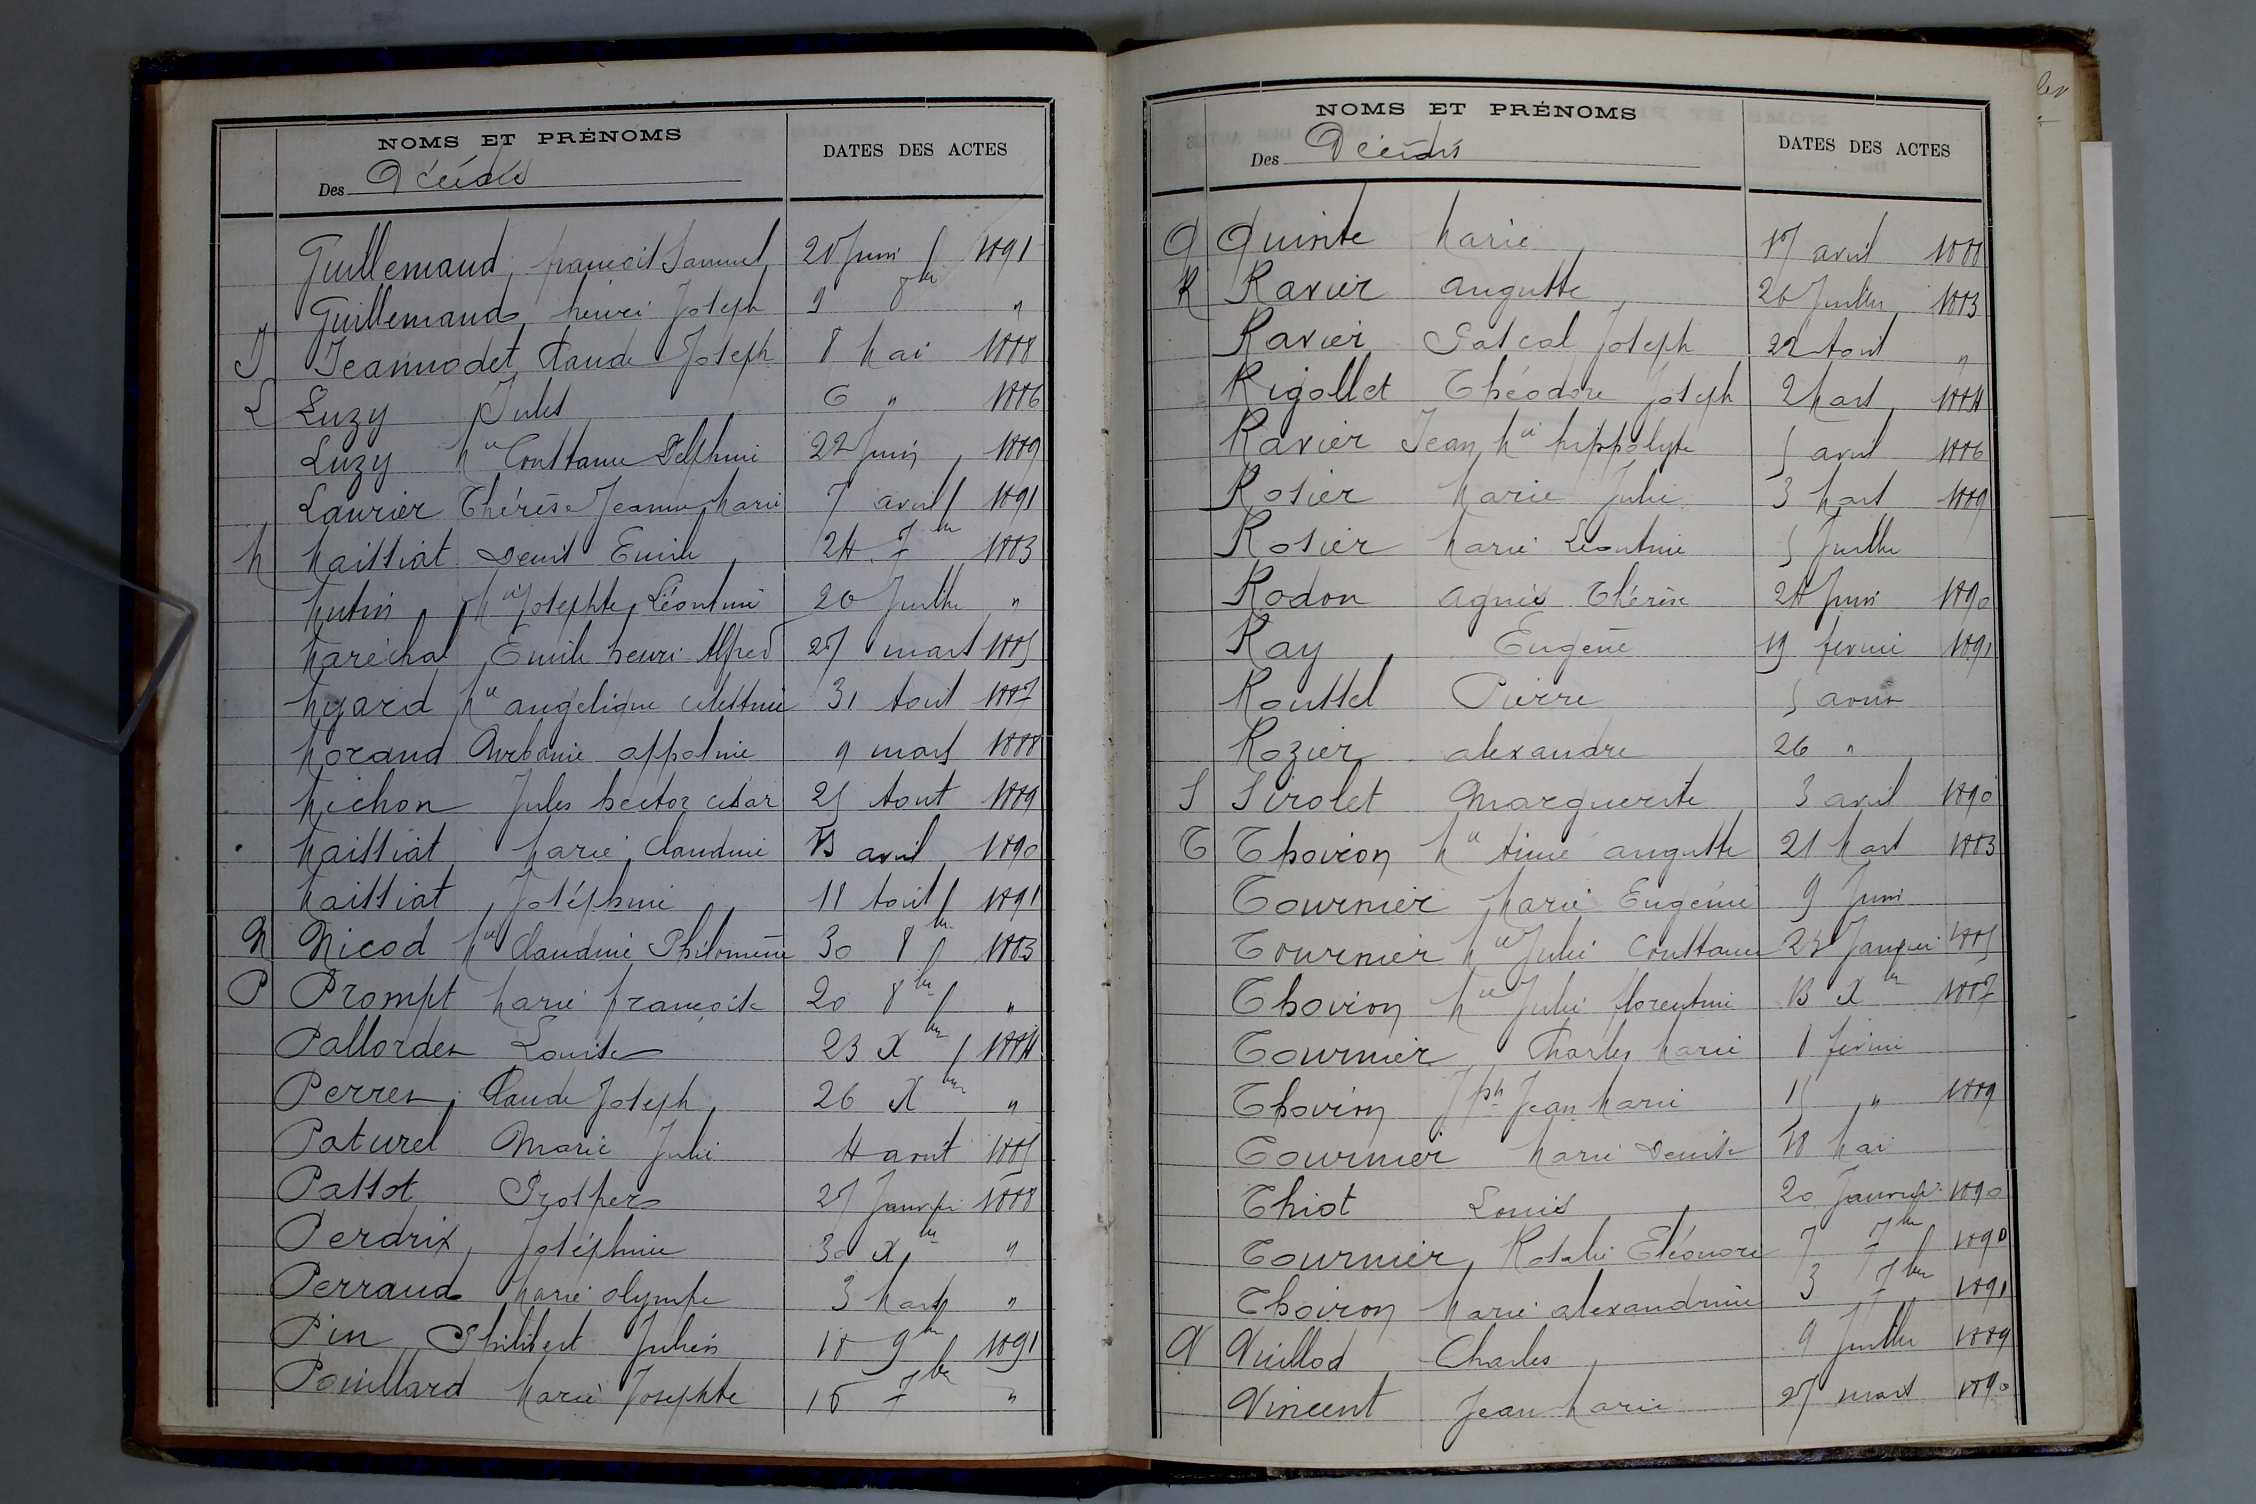 NOMS ET PRÉNOMS
Des Décédés
DATES DES ACTES
Guillemaud, françois Samuel 28 Juin 1891
Guillemaud, henri Joseph 9 8bre "
J Jeannodet, Claude Joseph 8 Mai 1888
L Luzy Jules 6 " 1886
Luzy Mie Constance Delphine 22 Juin 1889
Laurier Thérèse Jeanne Marie 7 avril 1891
M Maissiat Denis Emile 24 7bre 1883
Mutin Mie Josephte Léontine 20 Juillet "
Maréchal Emile henri Alfred 27 mars 1885
Myard Mie angelique celestine 31 Aout 1887
Morand Urbanie appolnie 9 mars 1888
Michon Jules hector cesar 25 Aout 1889
Maissiat Marie Claudine 13 avril 1890
Maissiat Joséphine 11 Aout 1891
N Nicod Mie Claudine Philomène 30 8bre 1883
P Prompt Marie françoise 20 8bre "
Pallordet Louise 23 Xbre 1884
Perret Claude Joseph 26 Xbre "
Paturel Marie Julie 4 aout 1885
Passot Prosper 27 Janvier 1888
Perdrix, Joséphine 30 Xbre "
Perraud Marie olympe 3 Mars "
Pin Philibert Julien 18 9bre 1891
Pouillard Marie Josephte 16 7bre "
NOMS ET PRÉNOMS
Des Décédés
DATES DES ACTES
Q Quinte Marie 17 avril 1888
R Ravier auguste 20 Juillet 1883
Ravier Pascal Joseph 22 Aout "
Rigollet Théodore Joseph 2 Mars 1884
Ravier Jean Mie hippolyte 5 avril 1886
Rosier Marie Julie 3 Mars 1889
Rosier Marie Léontine 5 Juillet
Rodon agnès Thérèse 24 Juin 1890
Ray Eugène 19 fevrier 1891
Roussel Pierre 5 avril
Rozier alexandre 26 "
S Sirolet Marguerite 3 avril 1890
T Thoiron Mie Aimé auguste 21 Mars 1883
Tournier Marie Eugénie 9 Juin
Tournier Mie Julie Constance 23 Janvier 1885
Thoiron Mie Julie florentine 13 Xbre 1887
Tournier Charles Marie 8 fevrier
Thoiron Jph Jean Marie 15 " 1889
Tournier Marie Denise 18 Mai
Thiot Louis 20 Janvier 1890
Tournier, Rosalie Eléonore 7 7bre 1890
Thoiron Marie alexandrine 3 7bre 1891
V Vuillod Charles 9 Juillet 1889
Vincent Jean Marie 27 mars 1890